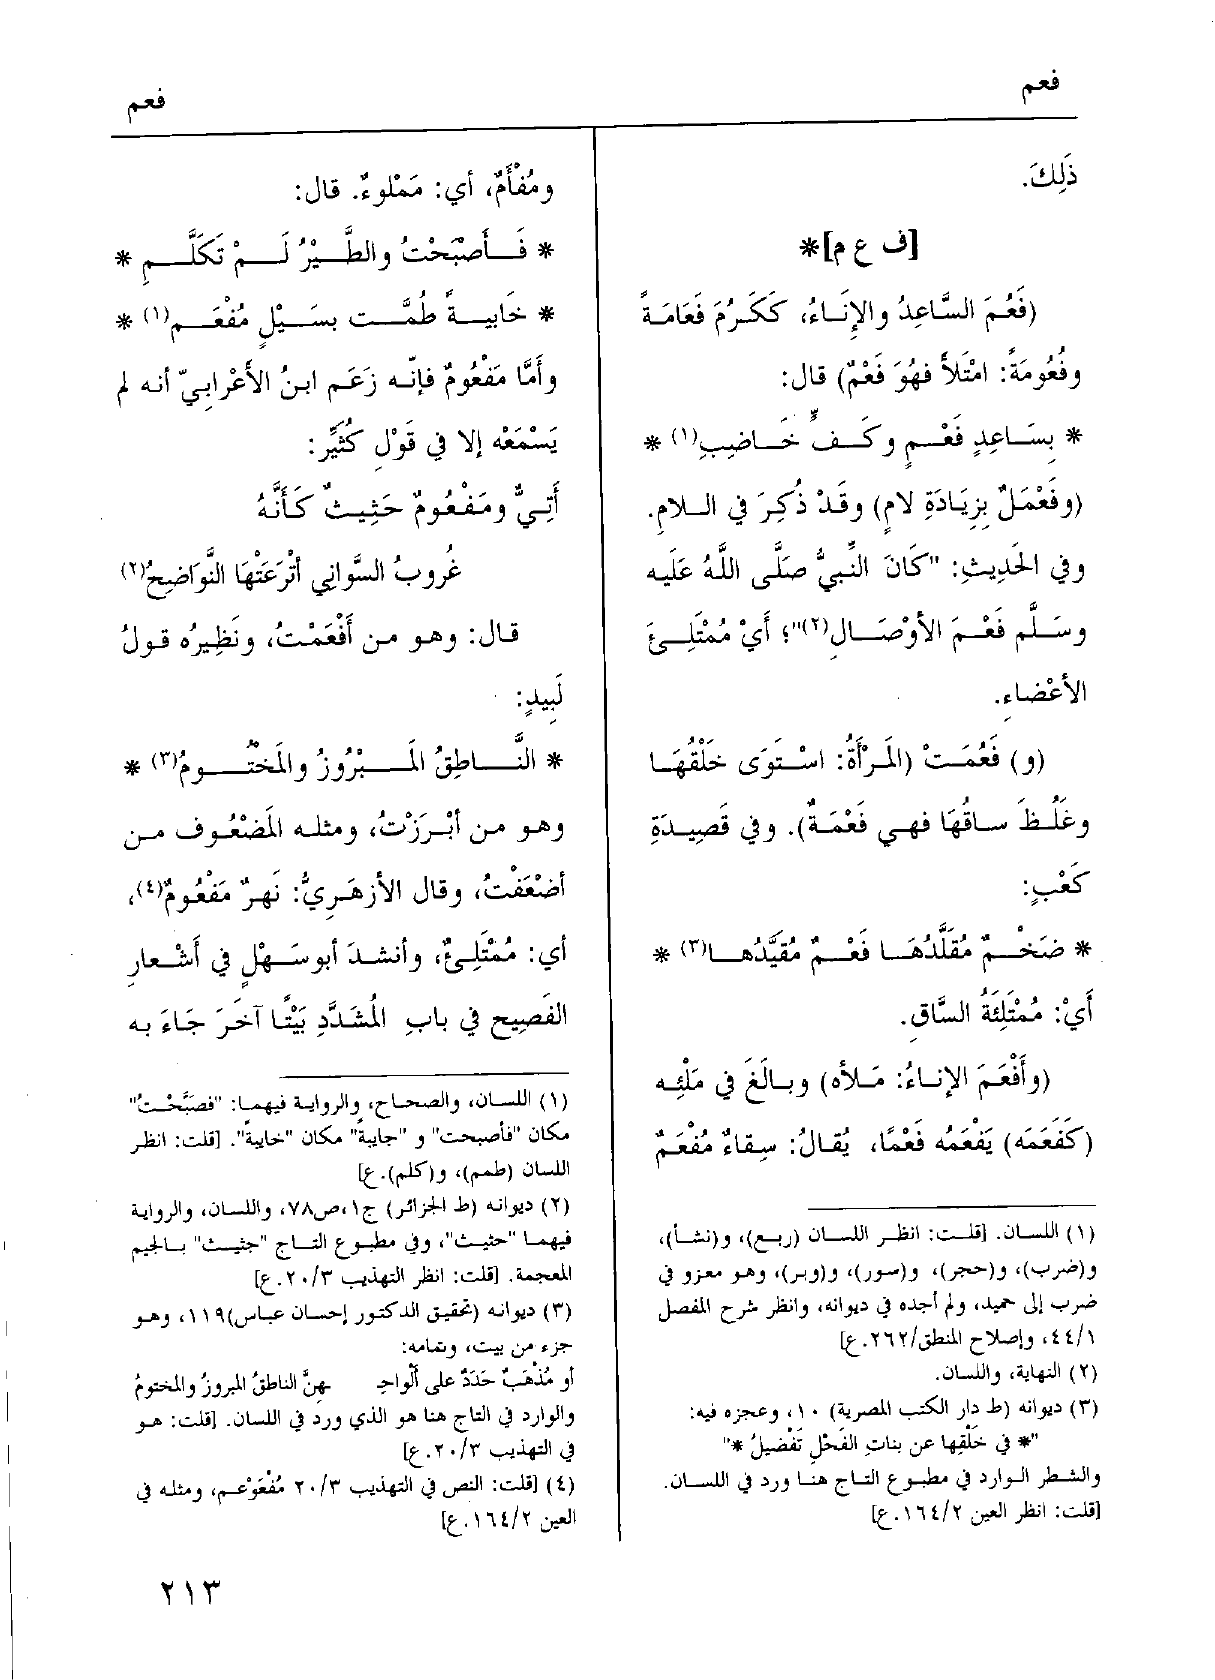 فعم
فعم
ذَلِكَ.
[ف ع م]*
(فَعُمَ السَّاعِدُ والإِنَاءُ، كَكَرُمَ فَعَامَةً
وفُعُومَةً: امْتَلأَ فهُوَ فَعْمٌ) قال:
* بِسَاعِدٍ فَعْمٍ وكَفٍّ خَاضِبِ(١) *
(وفَعْمَلٌ بِزِيَادَةِ لامٍ) وقَدْ ذُكِرَ في اللامِ.
وفي الحَدِيثِ: "كَانَ النَّبِيُّ صَلَّى اللهُ عَلَيه
وسَلَّم فَعْمَ الأَوْصَالِ(٢)"؛ أَيْ مُمْتَلِئَ
الأَعْضاءِ.
(و) فَعُمَتْ (المَرْأَةُ: اسْتَوَى خَلْقُهَا
وغَلُظَ ساقُهَا فهي فَعْمَةٌ). وفي قَصِيدَةِ
كَعْبٍ:
* ضَخْمٌ مُقَلَّدُهَا فَعْمٌ مُقَيَّدُهَا(٣) *
أَيْ: مُمْتَلِئَةُ السَّاقِ.
(وأَفْعَمَ الإناءُ: مَلأَه) وبالَغَ في مَلْئِه
(كَفَعَمَه) يَفْعَمُه فَعْمًا، يُقالُ: سِقاءٌ مُفْعَمٌ
(١) اللسان. [قلت: انظر اللسان (ربع)، و(نشأ)،
و(ضرب)، و(حجر)، و(سور)، و(وبر)، وهو معزو في
ضرب إلى حميد، ولم أجده في ديوانه، وانظر شرح المفصل
٤٤/١، وإصلاح المنطق/٢٦٢.ع]
(٢) النهاية، واللسان.
(٣) ديوانه (ط دار الكتب المصرية) ١٠، وعجزه فيه:
"* في خَلْقِها عن بناتِ الفَحْلِ تَفْضيلُ *"
والشطر الوارد في مطبوع التاج هنا ورد في اللسان.
[قلت: انظر العين ١٦٤/٢.ع]
ومُفْأَمٌ، أي: مَمْلوءٌ. قال:
* فَأَصْبَحْتُ والطَّيْرُ لَمْ تَكَلَّمِ *
* خَابِيةً طُمَّت بسَيْلٍ مُفْعَمِ(١) *
وأَمَّا مَفْعُومٌ فإنّه زَعَم ابنُ الأَعْرابِيّ أنه لم
يَسْمَعْه إلا في قَوْلِ كُثَيِّرٍ:
أَتِيٌّ ومَفْعُومٌ حَثِيثٌ كَأَنَّهُ
غُروبُ السَّوانِي أَتْرَعَتْهَا النَّوَاضِحُ(٢)
قال: وهو من أَفْعَمْتُ، ونَظِيرُه قولُ
لَبِيدٍ:
* النَّاطِقُ المَبْرُوزُ والمَخْتُومُ(٣) *
وهو من أَبْرَزْتُ، ومثله المَضْعُوف من
أَضْعَفْتُ، وقال الأزهَرِيُّ: نَهرٌ مَفْعُومٌ(٤)،
أي: مُمْتَلِئٌ، وأنشدَ أبو سَهْلٍ في أَشْعارِ
الفَصِيح في بابِ المُشَدَّدِ بَيْتًا آخَرَ جَاءَ به
(١) اللسان، والصحاح، والرواية فيهما: "فصَبَّحْتُ"
مكان "فأصبحت" و "جابيةً" مكان "خابيةً". [قلت: انظر
اللسان (طمم)، و(كلم).ع]
(٢) ديوانه (ط الجزائر) ج١، ص٧٨، واللسان، والرواية
فيهما "حثيث"، وفي مطبوع التاج "جثيث" بالجيم
المعجمة. [قلت: انظر التهذيب ٢٠/٣.ع]
(٣) ديوانه (تحقيق الدكتور إحسان عباس)١١٩، وهو
جزء من بيت، وتمامه:
أو مُذْهَبٌ جَدَدٌ على ألْواحِـ هِنَّ الناطقُ المبروزُ والمختومُ
والوارد في التاج هنا هو الذي ورد في اللسان. [قلت: هو
في التهذيب ٢٠/٣.ع]
(٤) [قلت: النص في التهذيب ٢٠/٣ مُفْعَوْعم، ومثله في
العين ١٦٤/٢.ع]
٢١٣